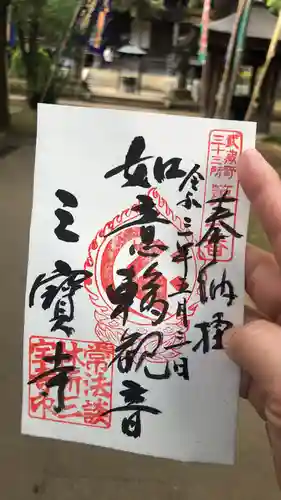 武蔵野
三十三所
奉納拝
令和三年五月三日
如意輪観音
三寶寺
常法談
林所三
宝寺印